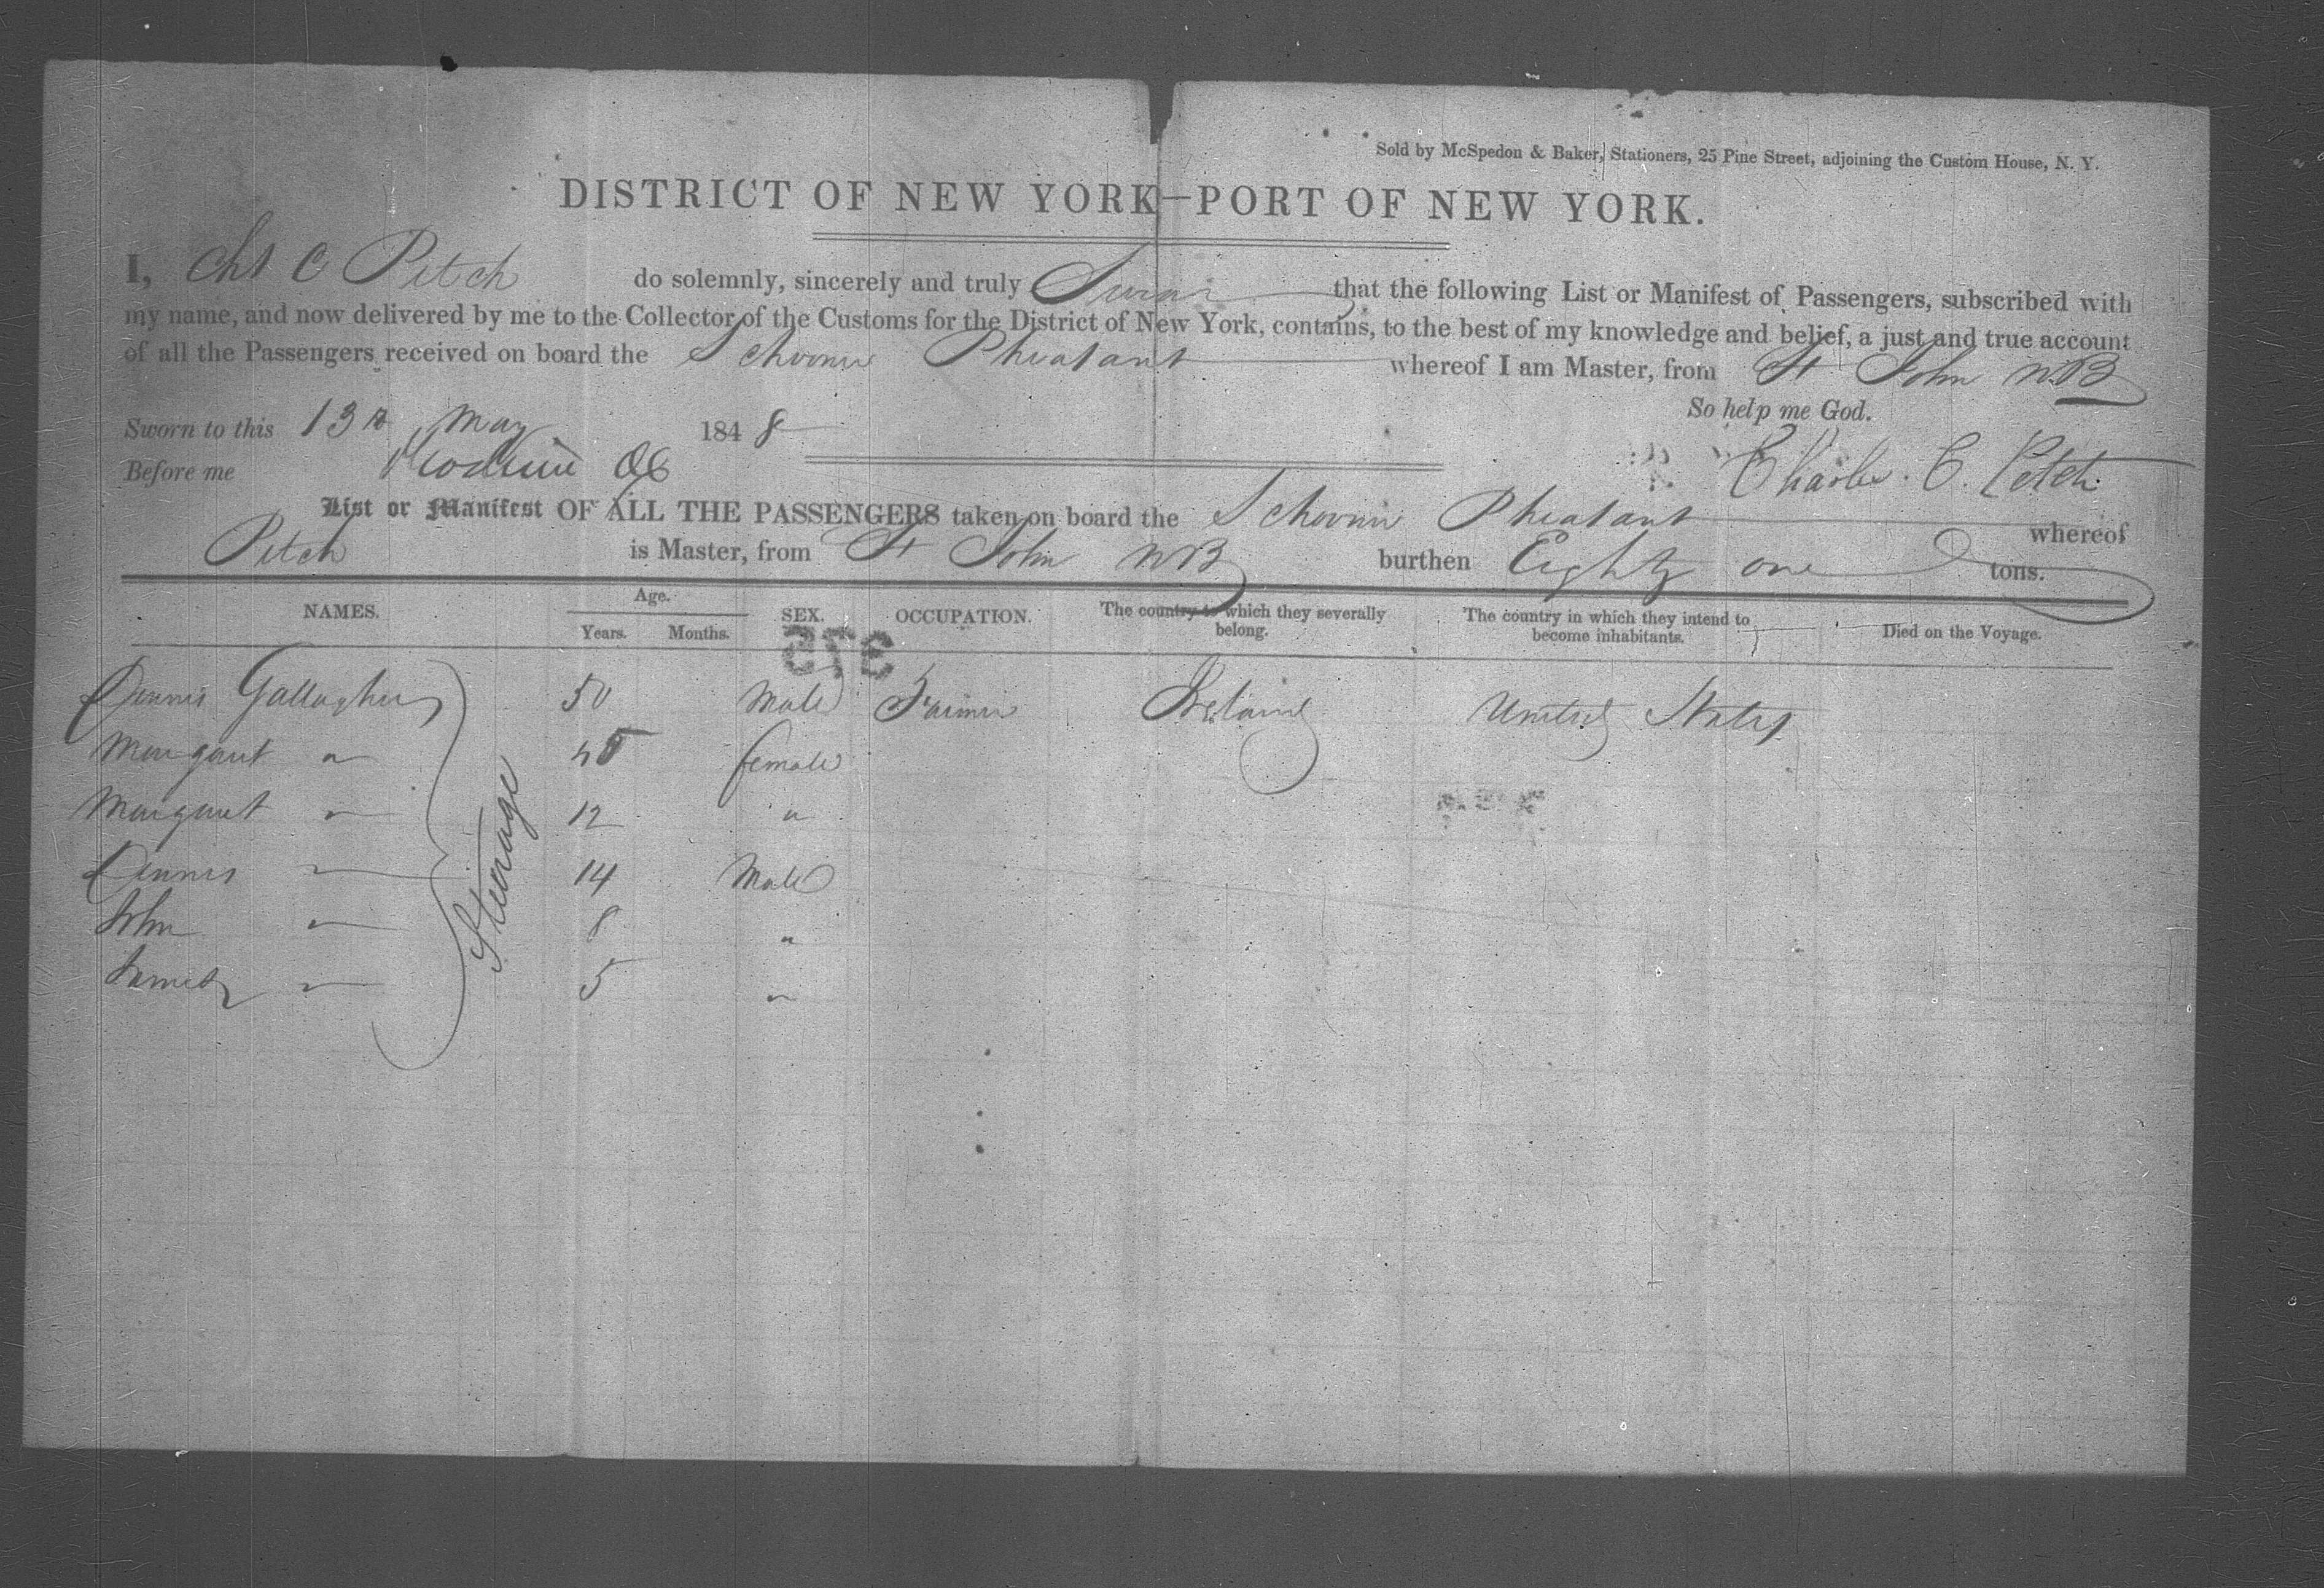 Sold by McSpedon & Baker, Stationers, 25 Pine Street, adjoining the Custom House, N. Y.
DISTRICT OF NEW YORK—PORT OF NEW YORK.
I, Chs C Petch do solemnly, sincerely and truly Swear that the following List or Manifest of Passengers, subscribed with
my name, and now delivered by me to the Collector of the Customs for the District of New York, contains, to the best of my knowledge and belief, a just and true account
of all the Passengers received on board the Schooner Pheasant whereof I am Master, from St John NB
So help me God.
Sworn to this 13th May 1848
Before me
Charles C. Petch
List or Manifest OF ALL THE PASSENGERS taken on board the Schooner Pheasant whereof
Petch is Master, from St John NB burthen Eighty one tons.
NAMES. Age. Years. Months. SEX. OCCUPATION. The country to which they severally belong. The country in which they intend to become inhabitants. Died on the Voyage.
Dennis Gallagher 50 Male Farmer Ireland United States
Margaret " 45 female
Margaret " 12 "
Dennis " 14 Male
John " 8 "
James " 5 "
Steerage
375